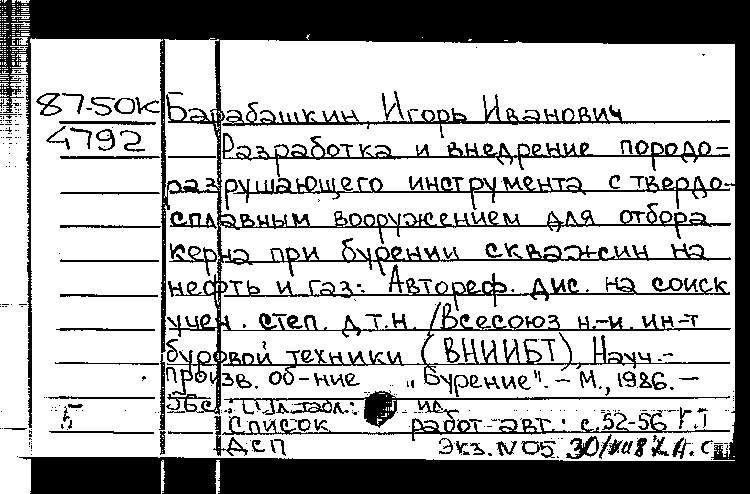 87-50к Барабашкин, Игорь Иванович
4792 Разработка и внедрение породо-
разрушающего инструмента с твердо-
сплавным вооружением для отбора
керна при бурении скважин на
нефть и газ: Автореф. дис. на соиск
учен. степ. д.т.н. /Всесоюз н.-и. ин-т
буровой техники (ВНИИБТ), Науч.-
произв. об-ние "Бурение". - М., 1986. -
ил.
5 Список работ авт.: с. 52-56
ДСП Экз. N 05